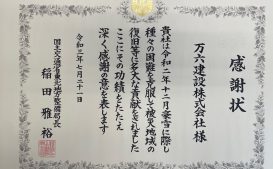 感謝状
万六建設株式会社 様
貴社は令和二年十二月豪雪に際し
種々の困難を克服して被災地域の
復旧等に多大な貢献をされました
ここにその功績をたたえ
深く感謝の意を表します
令和三年七月二十一日
国土交通省東北地方整備局長
稲田雅裕